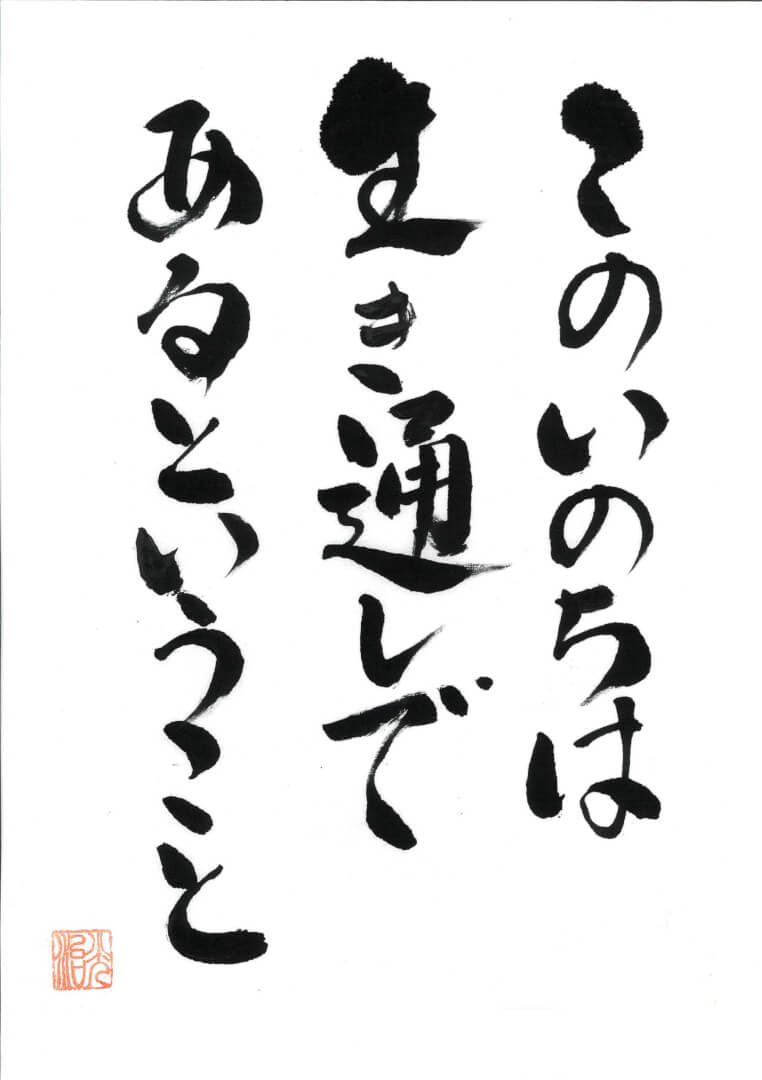 このいのちは
生き通しで
あるということ